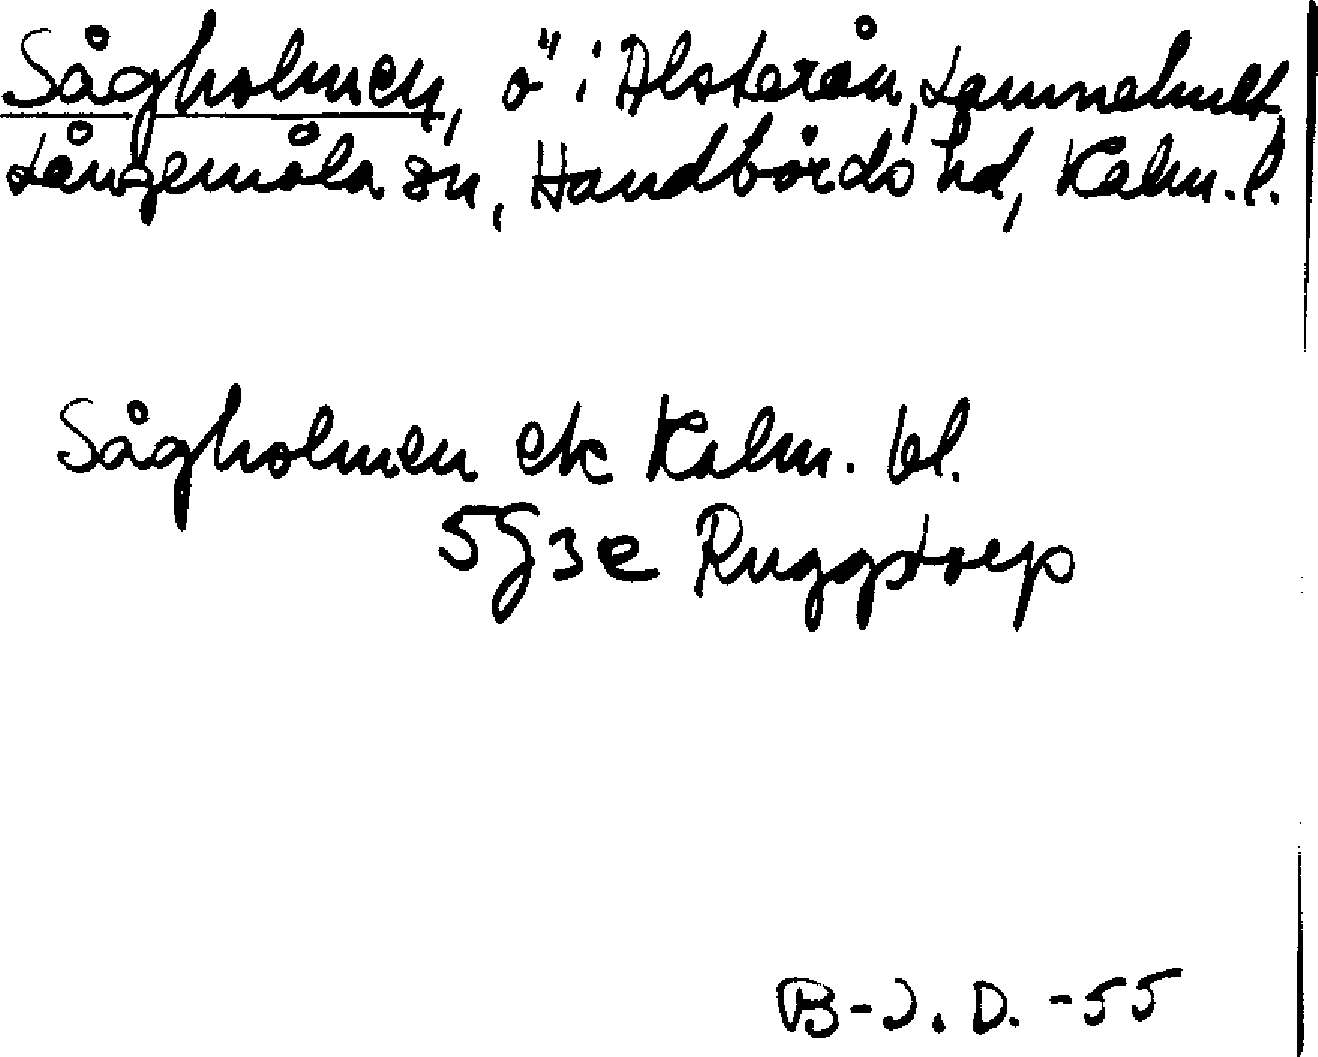 Sågholmen, ö i Alsterån, Lammehult
Långemåla sn, Handbörds hd, Kalm. l.
Sågholmen ek Kalm. bl.
5G3e Ruggstorp
B-J. D. -55